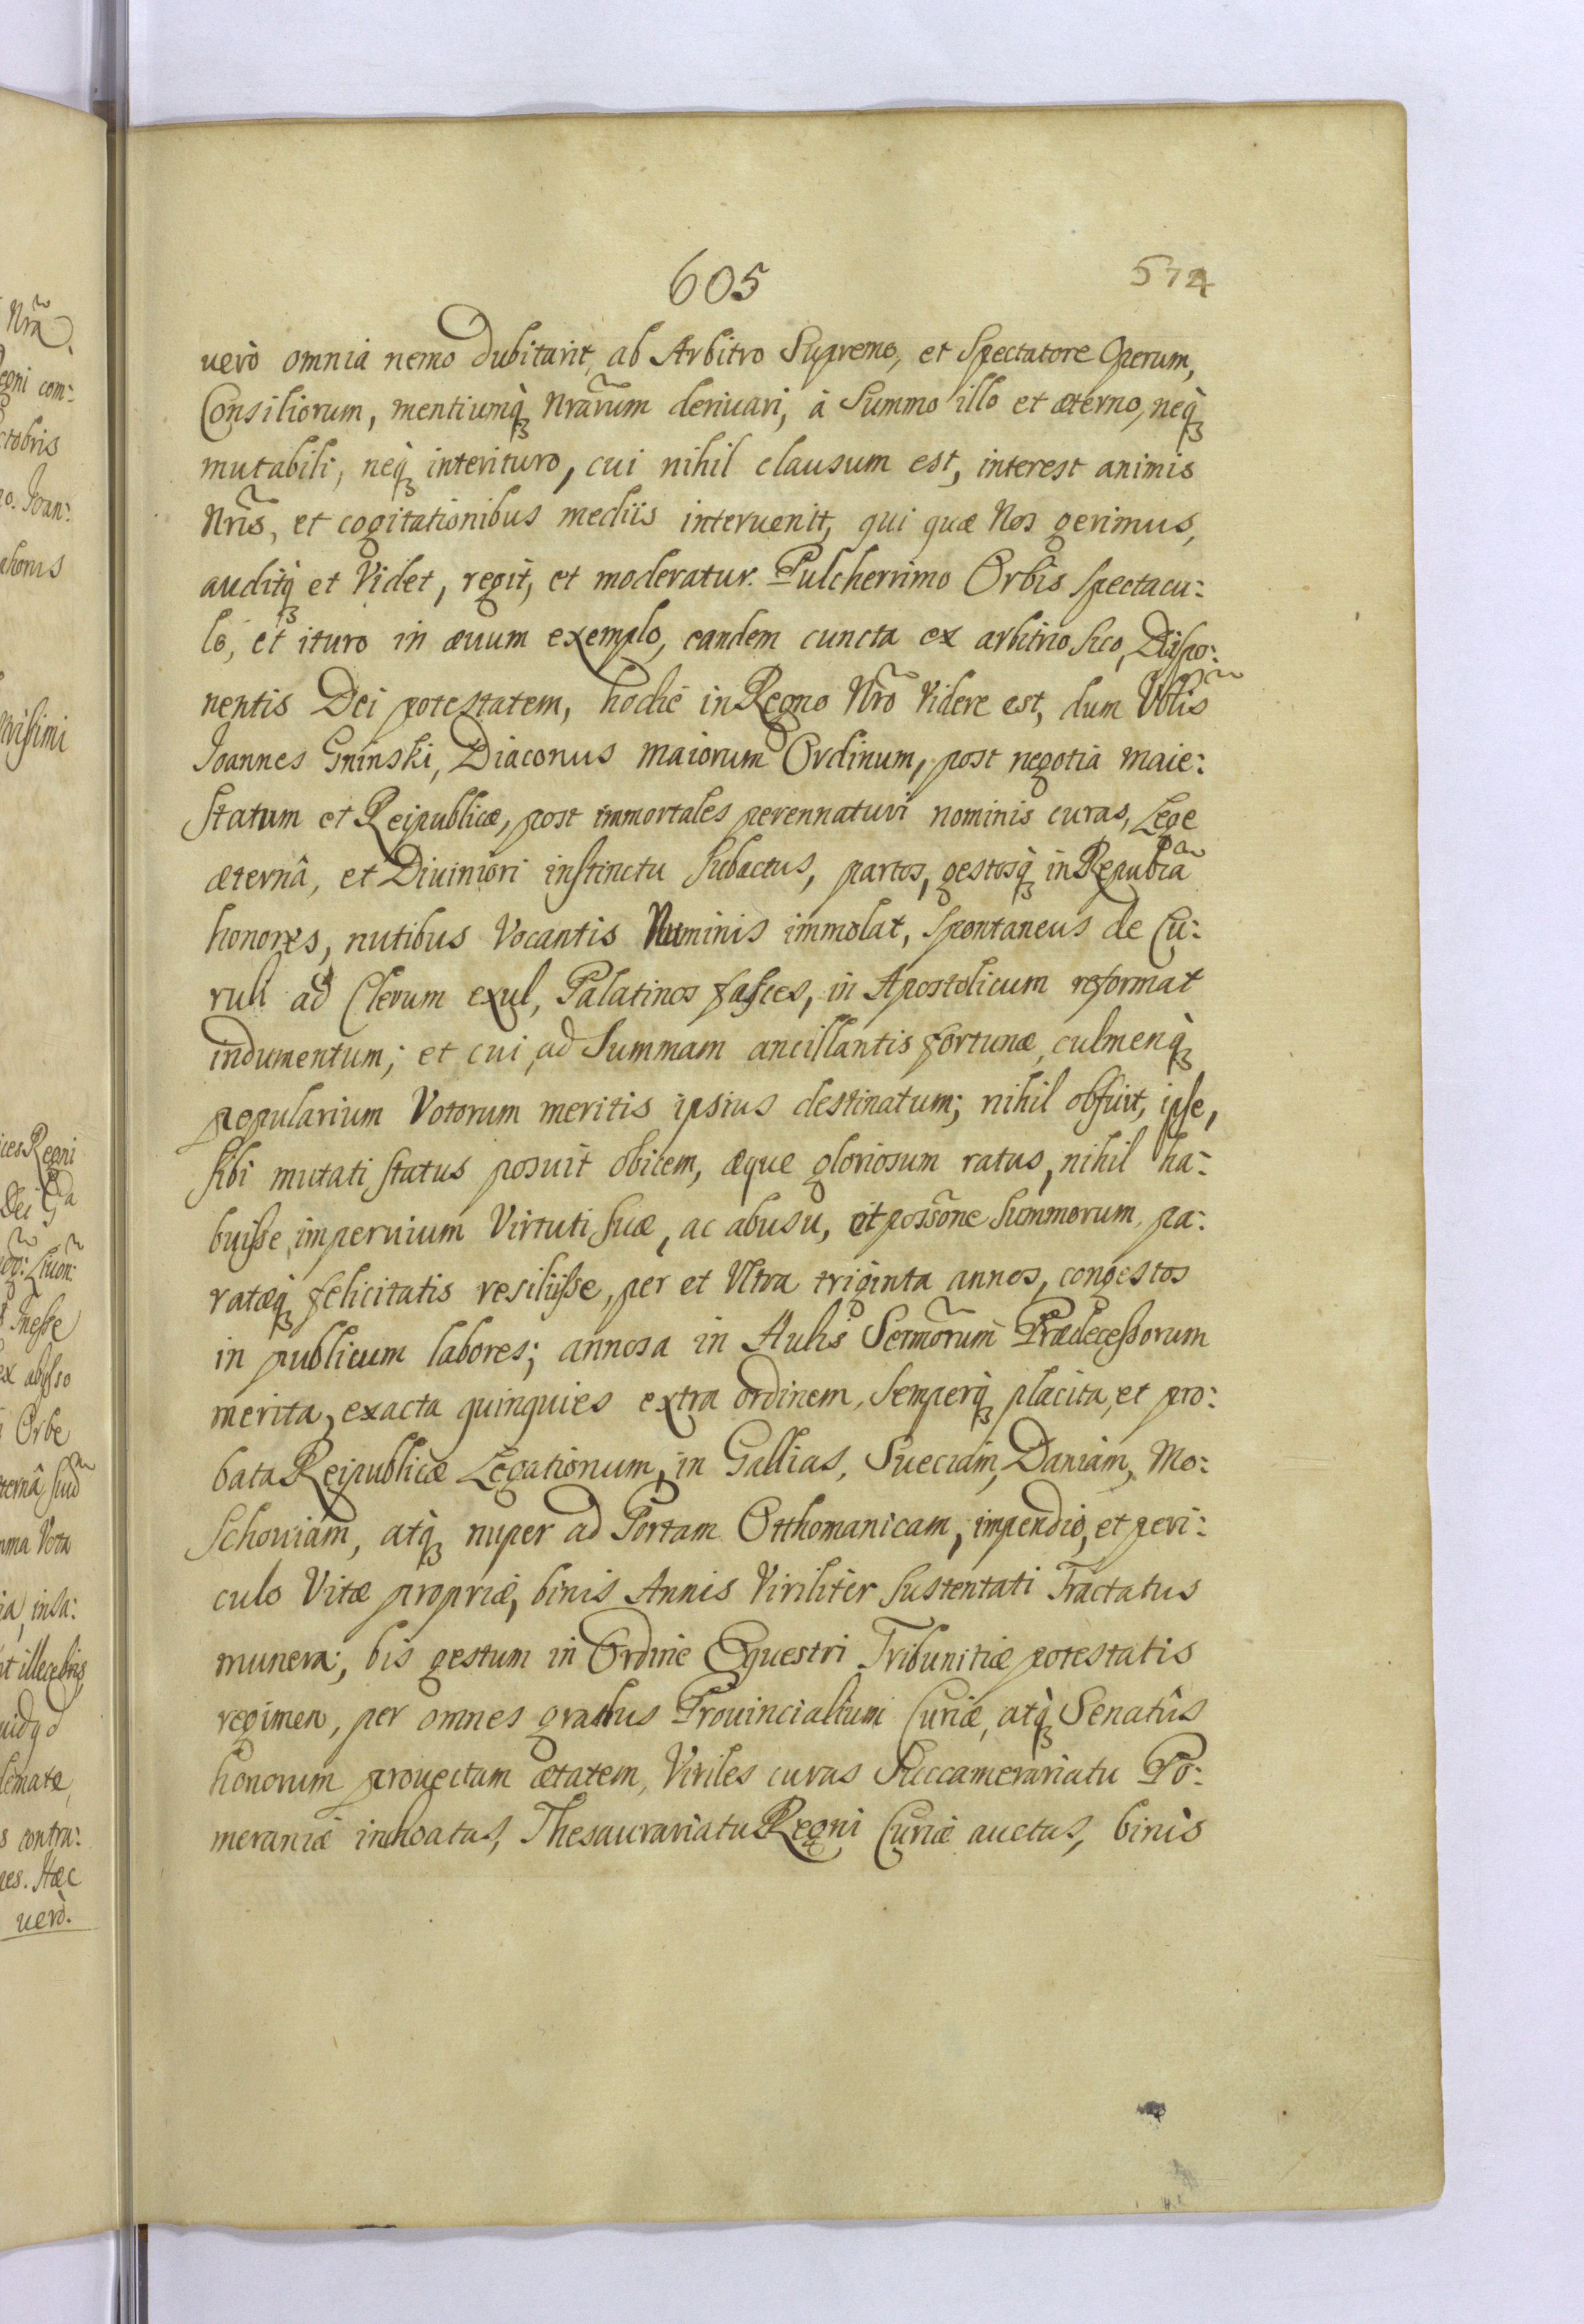 605
574
uerò omnia nemo dubitarit, ab Arbitro Supremo, et Spectatore Operum,
Consiliorum, mentiumq̀ʒ Nrãrum deriuari, à Summo illo et æterno, neq̀ʒ
mutabili, neq̀ʒ interituro, cui nihil clausum est, interest animis
Nrĩs, et cogitationibus mediis interuenit, qui quæ Nos gerimus,
auditq̀ʒ et Videt, regit, et moderatur. Pulcherrimo Orbis spectacu:
lo, et ituro in æuum exemplo, eandem cuncta ex arbitrio suo, Dispo:
nentis Dei potestatem, hodie in Regno Nrõ Videre est, dum Vblĩs
Joannes Gninski, Diaconus maiorum Ordinum, post negotia Maie:
statum et Reipublicæ, post immortales perennaturi nominis curas, Lege
æternâ, et Diuiniori instinctu subactus, partos, gestosq̀ʒ in Republĩca
honores, nutibus Vocantis Numinis immolat, spontaneus de Cu:
ruli ad Clerum exul, Palatinos fasces, in Apostolicum reformat
indumentum; et cui ad Summam ancillantis fortunæ, culmenq̀ʒ
popularium Votorum meritis ipsius destinatum; nihil obfuit, ipse,
sibi mutati status posuit obicem, æque gloriosum ratus, nihil ha:
buisse imperuium Virtuti suæ, ac abusu, et possõne Summorum, pa:
ratæq̀ʒ felicitatis resiliisse, per et Vltra triginta annos, congestos
in publicum labores; annosa in Aulis Sermõrum Prædecessorum
merita, exacta quinquies extra ordinem, semperq̀ʒ placita, et pro:
bata Reipublicæ Legationum, in Gallias, Sueciam, Daniam, Mo:
schouiam, atq̀ʒ nuper ad Portam Otthomanicam, impendio, et peri:
culo Vitæ propriæ, binis Annis Viriliter sustentati Tractatus
munera; bis gestum in Ordine Equestri Tribunitiæ potestatis
regimen, per omnes gradus Prouincialium Curiæ, atq̀ʒ Senatûs
honorum prouectam ætatem, Viriles curas Succamerariatu Po:
meraniæ inchoatas, Thesaurariatu Regni Curiæ auctas, binis